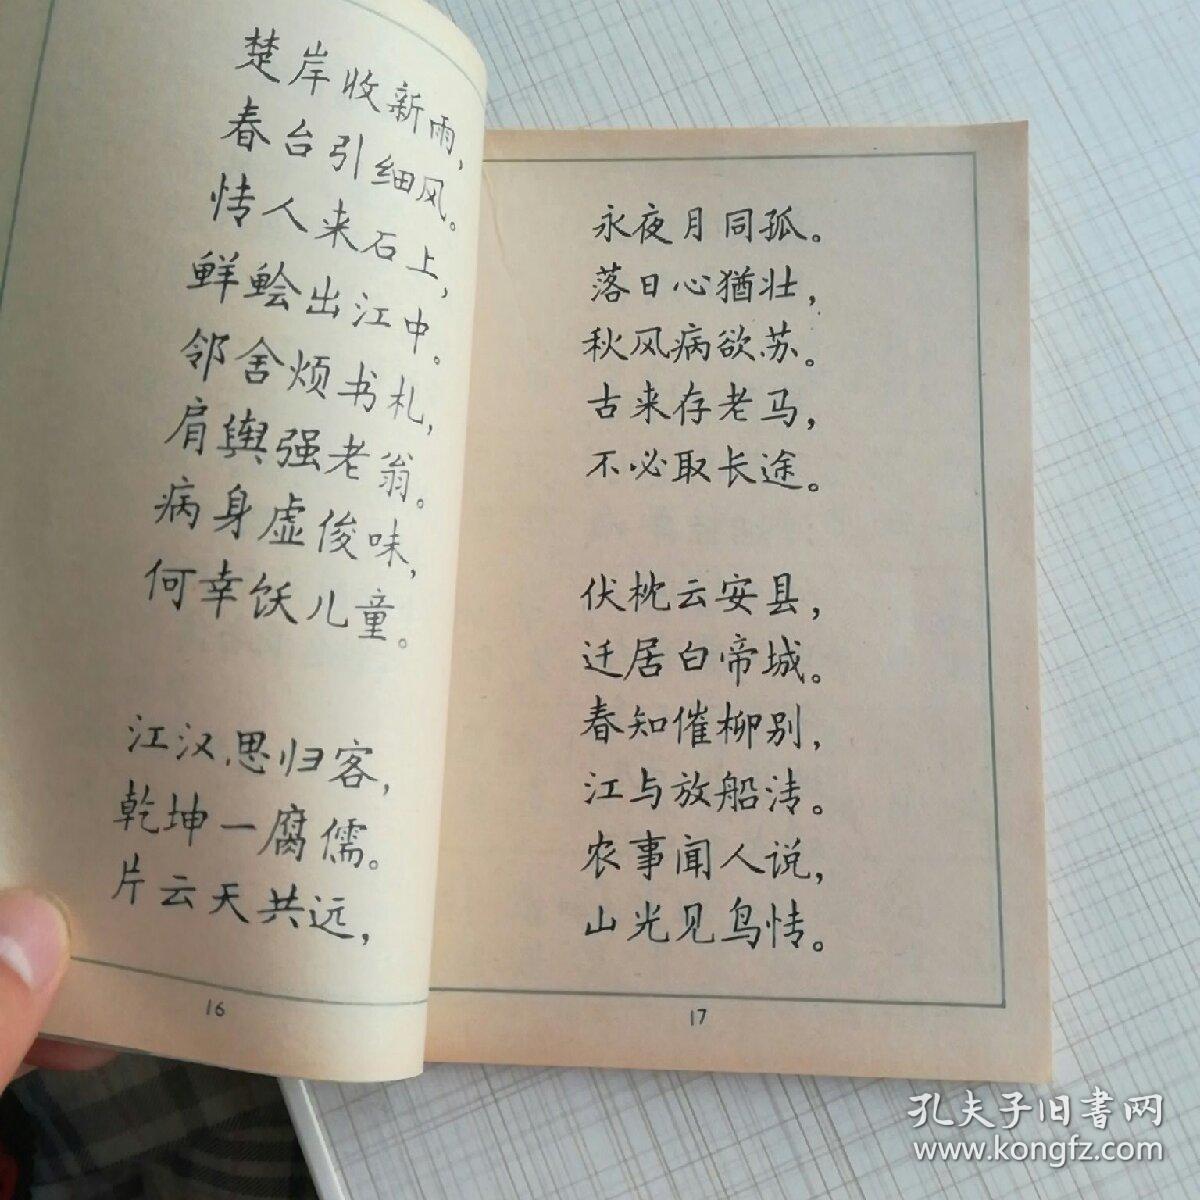 楚岸收新雨，
春台引细风。
情人来石上，
鲜鲙出江中。
邻舍烦书札，
肩舆强老翁。
病身虚俊味，
何幸饫儿童。
江汉思归客，
乾坤一腐儒。
片云天共远，
16
永夜月同孤。
落日心犹壮，
秋风病欲苏。
古来存老马，
不必取长途。
伏枕云安县，
迁居白帝城。
春知催柳别，
江与放船清。
农事闻人说，
山光见鸟情。
17
孔夫子旧書网
www.kongfz.com